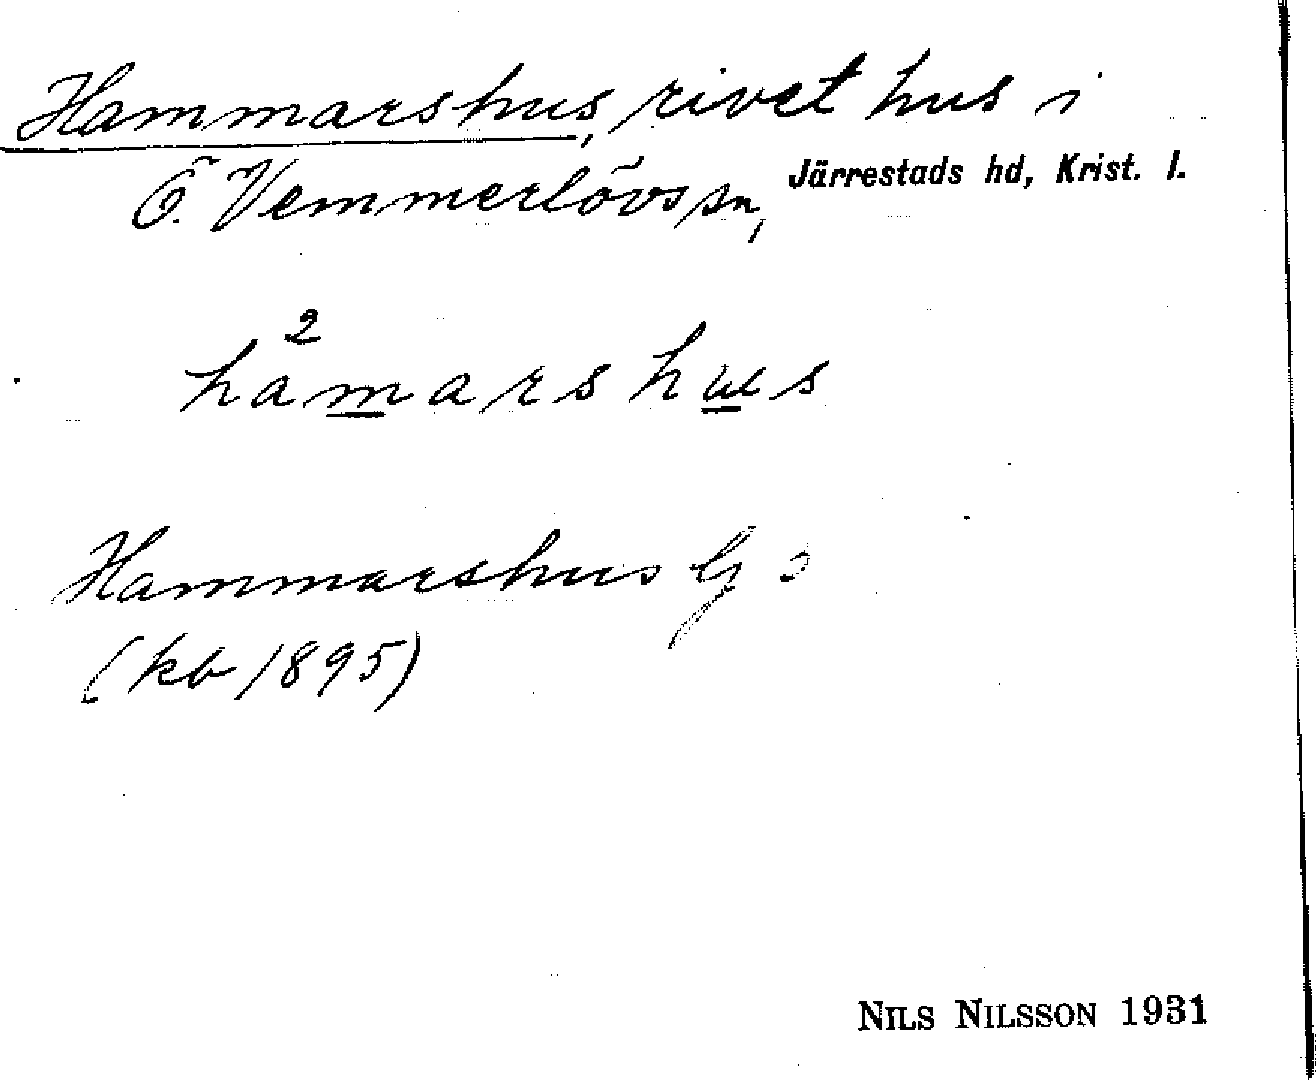 Hammarshus, rivet hus i
Ö. Vemmerlövs sn, Järrestads hd, Krist. l.
2
hamarshus
Hammarshus
(kb 1895)
NILS NILSSON 1931